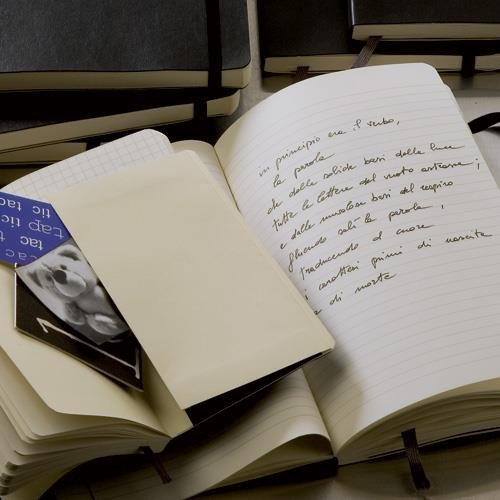 in principio era il verbo,
la parola
che dalle solide basi della luce
tutte le lettere del moto estrasse;
e dalle nuvolose basi del respiro
fluendo salì la parola,
traducendo al cuore
i caratteri primi di nascita
e di morte
tic tac
tap tic
tac